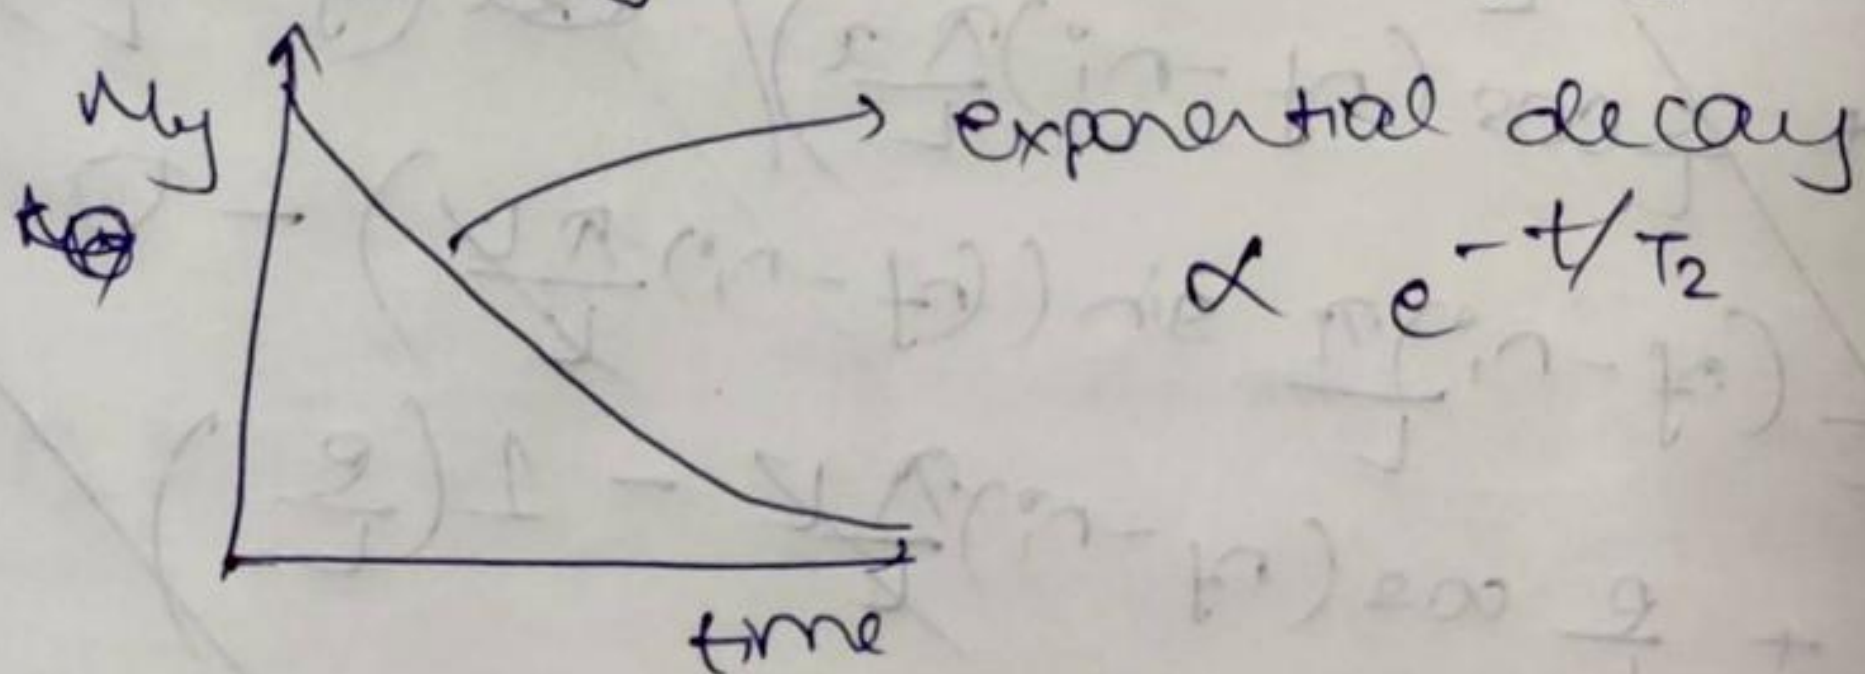 My
exponential decay
∝ e^{-t/T₂}
time